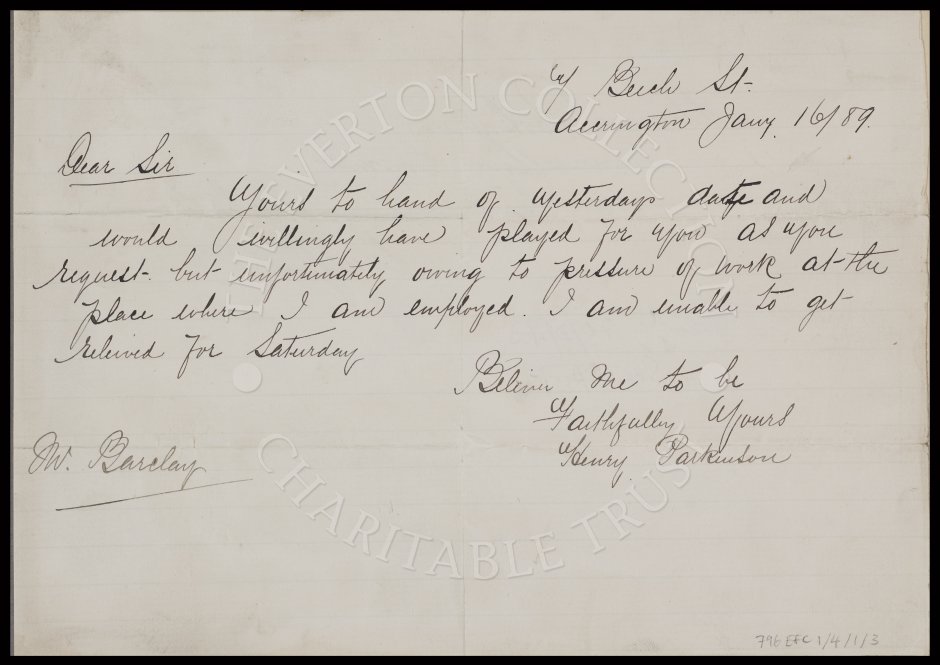 Beech St.
Accrington Jany. 16/89.
Dear Sir
Yours to hand of yesterdays date and
would willingly have played for you as you
request. but unfortunately owing to pressure of work at the
place where I am employed. I am unable to get
releived for Saturday
Believe me to be
Faithfully Yours
Henry Parkinson
Mr. Barclay
THE EVERTON COLLECTION
CHARITABLE TRUST
796 EFC 1/4/1/3